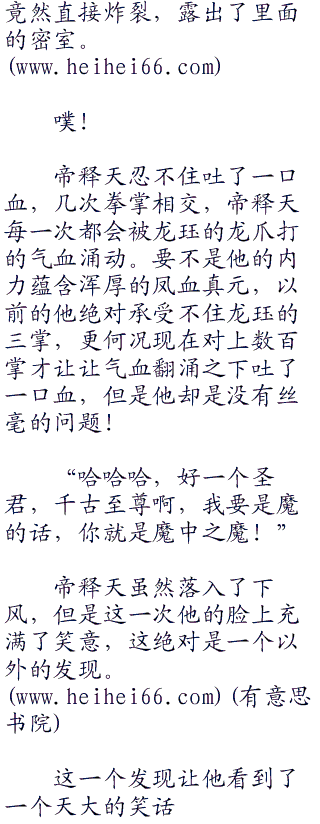 竟然直接炸裂，露出了里面
的密室。
(www.heihei66.com)
噗！
帝释天忍不住吐了一口
血，几次拳掌相交，帝释天
每一次都会被龙珏的龙爪打
的气血涌动。要不是他的内
力蕴含浑厚的凤血真元，以
前的他绝对承受不住龙珏的
三掌，更何况现在对上数百
掌才让让气血翻涌之下吐了
一口血，但是他却是没有丝
毫的问题！
“哈哈哈，好一个圣
君，千古至尊啊，我要是魔
的话，你就是魔中之魔！”
帝释天虽然落入了下
风，但是这一次他的脸上充
满了笑意，这绝对是一个以
外的发现。
(www.heihei66.com)(有意思
书院)
这一个发现让他看到了
一个天大的笑话